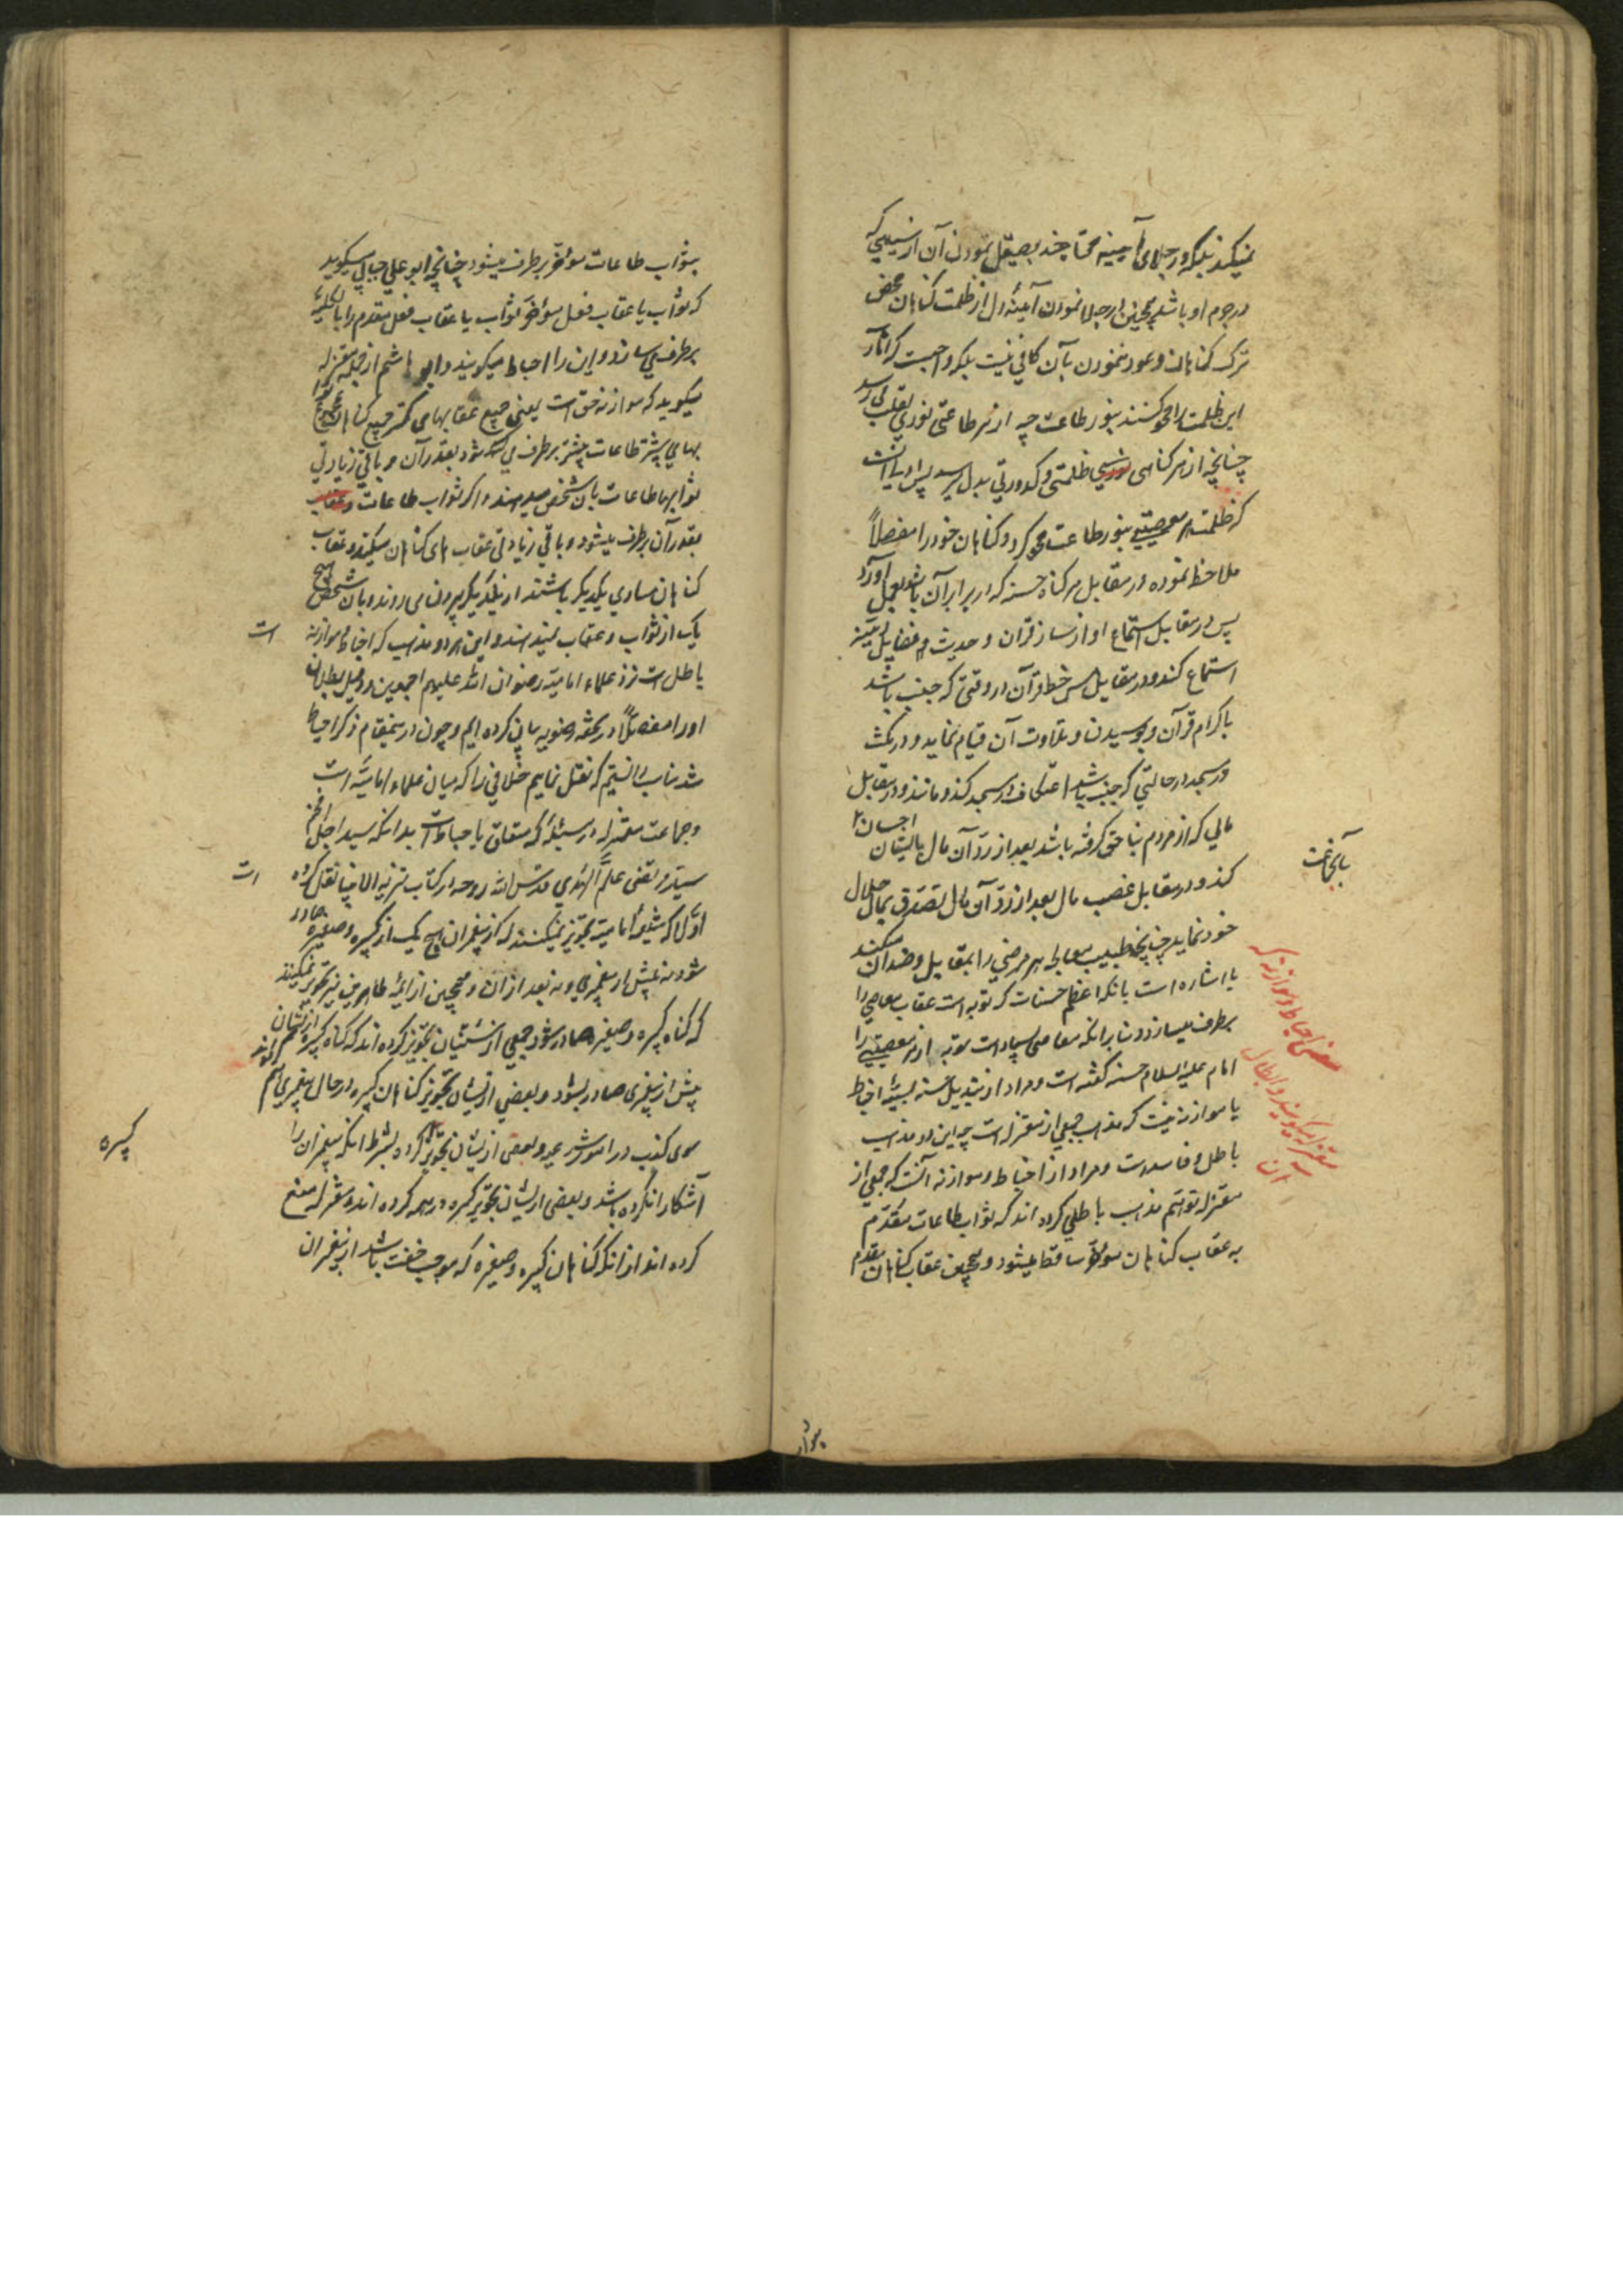 نمیکند بلکه در جلای آیینه محتاجند بصیقل نمودن آن از سیاهی که
در جرم او باشد همچنین در جلا نمودن آیینهٔ دل از ظلمت گناهان محض
ترک گناهان و عود ننمودن بآن کافی نیست بلکه واجبست که آثار
این ظلمت را محو کنند بنور طاعت چه از هر طاعتی نوری بقلب می‌رسد
چنانچه از هر گناهی ظلمتی و کدورتی بدل می‌رسد پس اولی آنست
که ظلمت هر معصیتی بنور طاعت محو کردد و گناهان خود را مفصلاً
ملاحظه نموده در مقابل هر گناه حسنه که در برابر آن باشد بعمل آورد
پس در مقابل استماع او از ساز قرآن و حدیث و مسایل دینیه
استماع کند و در مقابل مس خط قرآن در وقتی که جنب باشد
باکرام قرآن و بوسیدن و تلاوت آن قیام نماید و در مکث
در مسجد در حالتی که جنب باشد اعتکاف در مسجد کند و مانند و در مقابل
مالی که از مردم بناحق گرفته باشد بعد از رد آن مال بایشان احسان
کند و در مقابل غصب مال بعد از رد آن مال تصدق بمال حلال
خود نماید چنانچه طبیب معالجه هر مرضی را بمقابل و ضد آن میکند
یا اشاره است بانکه اعظم حسنات که توبه است عقاب معاصی را
برطرف میسازد و بنا بر آنکه معاصی بسیار است توبه از هر معصیتی را
امام علیه السلام حسنه گفته است و مراد از تبدیل حسنه بسیئه احباط
یا موازنه نیست که مذهب جمعی از معتزله است چه این دو مذهب
باطل و فاسد است و مراد از احباط و موازنه آنست که جمعی از
معتزله توهم مذهب باطلی کرده اند که ثواب طاعات مقدم
به عقاب گناهان مؤخر ساقط میشود و همچنین عقاب گناهان مقدم
معنی احباط و موازنه که
معتزله میگویند و ابطال
آن
بثواب طاعات مؤخر برطرف میشود چنانچه ابو علی جبایی میگوید
که ثواب یا عقاب فعل مؤخر ثواب یا عقاب فعل مقدم را بالکلیه
برطرف می سازد و این را احباط میگویند و ابو هاشم از جمله معتزله
میگوید که موازنه حق است یعنی جمیع عقابهای کمتر جمیع گناهان
بهای بیشتر طاعات بیشتر برطرف می شود بقدر آن و باقی زیادتی
ثوابها طاعات بان شخص میرسد و اگر ثواب طاعات
بقدر آن برطرف میشود و باقی زیادتی عقاب های گناهان میکند و عقاب
گناهان مساوی یکدیگر باشند از یکدیگر بیرون می روند و بان شخص هیچ
یک از ثواب و عقاب نمیرسند و این هر دو مذهب که احباط و موازنه است
باطل است نزد علماء امامیه رضوان الله علیهم اجمعین و دلیل بطلان
او را مفصلاً در تحفه رضویه بیان کرده ایم و چون در ینمقام ذکر احباط
شد مناسب دانستیم که نقل نماییم خلافی را که میان علماء امامیه است
و جماعت معتزله در مسئلهٔ که متعلق باحباط است بدانکه سید اجل افخم
سید مرتضی علم الهدی قدس الله روحه در کتاب تنزیه الانبیا نقل کرده است
اولا که شیعهٔ امامیه تجویز نمیکنند که از پیغمبران هیچ یک از کبیره و صغیره صادر
شود نه پیش از پیغمبری و نه بعد از آن و همچنین از ائمه طاهرین نیز تجویز نمیکنند
که گناه کبیره و صغیره صادر شود و جمعی از سنیان تجویز کرده اند که گناه کبیره از ایشان
پیش از پیغمبری صادر بشود و بعضی از ایشان تجویز گناهان کبیره در حال پیغمبری هم
سوی کذب در امور شرعیه و بعضی از ایشان تجویز کرده بشرط انکه پیغمبران را کبیره
آشکارا نکرده باشد و بعضی از ایشان تجویز کبیره در همه کرده اند و معتزله منع
کرده اند از انکه گناهان کبیره و صغیره که موجب خفت باشد از پیغمبران